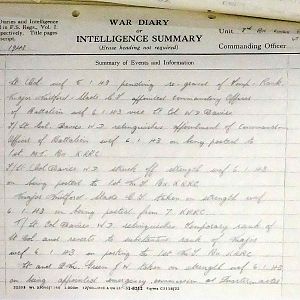 Diaries and Intelligence
d in F.S. Regs., Vol. I.
pectively. Title pages
script.
1943
WAR DIARY
or
INTELLIGENCE SUMMARY
(Erase heading not required)
Unit
Commanding Officer
Summary of Events and Information
Lt Col wef 6 1 43 pending re-grant of Rank
Major Whitford-Slade C.L appointed Commanding Officer
of Battalion wef 6 1 43 vice Lt Col W D Davies
T/Lt Col. Davies W D relinquishes appointment of Commanding
Officer of Battalion wef 6 1 43 on being posted to
1st M.T. Bn. K.R.R.C
T/Lt Col. Davies W D struck off strength wef 6 1 43
on being posted to 1st M.T Bn. K.R.R.C
Major Whitford Slade C L taken on strength wef
6 1 43 on being posted from 7 KRRC
T/Lt Col Davies W D relinquishes temporary rank of
Lt Col and reverts to substantive rank of Major
wef 6 1 43 on posting to 1st M.T Bn KRRC
Lt and Green J W taken on strength wef 5 1
43 on being appointed emergency commission as